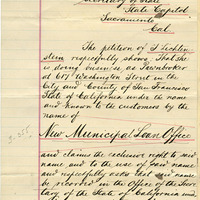 Secretary of State
State Capitol
Sacramento
Cal.
The petition of I Lichten
stein respectfully shows That he
is doing business as Pawnbroker
at 607 Washington Street in the
City and County of San Francisco
State of California under the name
and known to the customers by the
name of
New Municipal Loan Office
and claims the exclusive right to said
name and to the use of said name
and respectfully asks that said name
be recorded in the Office of the Secre
tary of the State of California and